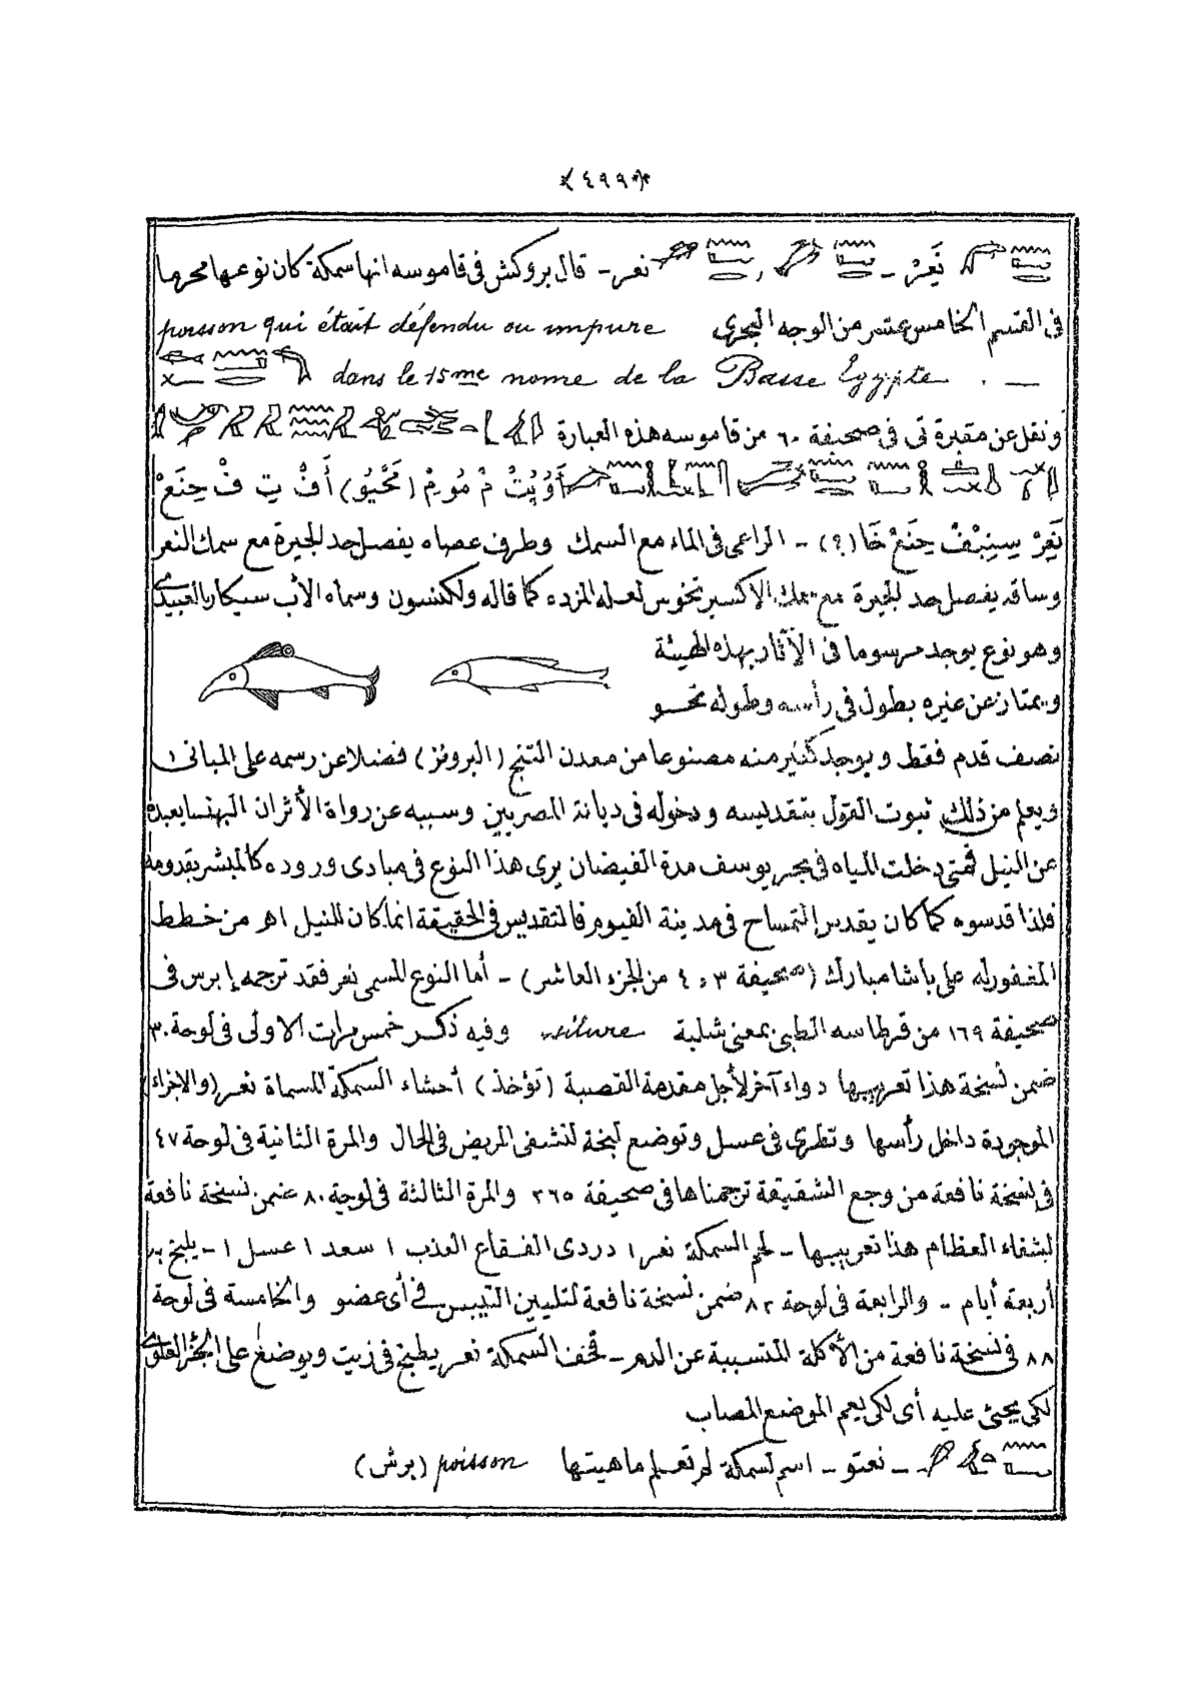 ٤٩٩
نَعِرْ - نعر - قال بروكش فى قاموسه انها سمكة كان نوعها محرما
فى القسم الخامس عشر من الوجه البحرى poisson qui était défendu ou impure
dans le 15me nome de la Basse Egypte . —
ونقل عن مقبرة تى فى صحيفة ٦٠ من قاموسه هذه العبارة
أَوُيُتْ مْ مُو مْ (مَحْيُو) أَفْ تِ فْ حِنَعْ
نَعِرْ سِنِبْفْ حِنَعْ خَا (؟) - الراعى فى الماء مع السمك وطرف عصاه يفصل حد البحيرة مع سمك النعر
وساقه يفصل حد البحيرة مع سمك الاكسيرنخوس لعله المزده كما قاله ولكنسون وسماه الأب سيكار بالقبيدى
وهو نوع يوجد مرسوما فى الآثار بهذه الهيئة
ويمتاز عن غيره بطول فى رأسه وطوله نحو
نصف قدم فقط ويوجد كثير منه مصنوعا من معدن التنج (البرونز) فضلا عن رسمه على المبانى ا
ويعلم من ذلك ثبوت القول بتقديسه ودخوله فى ديانة المصريين وسببه عن رواة الأثران البهنسا بعيدة
عن النيل فمتى دخلت المياه فى بحر يوسف مدة الفيضان يرى هذا النوع فى مبادى وروده كالمبشر بقدومه
فلذا قدسوه كما كان يقدس التمساح فى مدينة الفيوم فالتقديس فى الحقيقة انما كان للنيل اهر من خطط
المغفور له على باشا مبارك (صحيفة ٣ و ٤ من الجزء العاشر) - أما النوع المسمى نعر فقد ترجمه إبرس فى
صحيفة ١٦٩ من قرطاسه الطبى بمعنى شلبة silure وفيه ذكر خمس مرات الاولى فى لوحة ٣٠
ضمن نسخة هذا تعريبها دواء آخر لأجل مقدمة القصبة (تؤخذ) أحشاء السمكة المسماة نعر (والاجزاء
الموجودة داخل رأسها وتطرى فى عسل وتوضع لبخة لتشفى المريض فى الحال والمرة الثانية فى لوحة ٤٧
فى نسخة نافعة من وجع الشقيقة ترجمناها فى صحيفة ٢٦٥ والمرة الثالثة فى لوحة ٨٠ ضمن نسخة نافعة
لشفاء العظام هذا تعريبها - لحم السمكة نعر ١ دردى الفقاع العذب ١ سعد ١ عسل ١ - يلبخ به
أربعة أيام - والرابعة فى لوحة ٨٢ ضمن نسخة نافعة لتليين التيبس فى أى عضو والخامسة فى لوحة
٨٨ فى نسخة نافعة من الأكلة المتسببة عن الدم - قحف السمكة نعر يطبخ فى زيت ويوضع على
لكى يحثى عليه أى لكى يعم الموضع المصاب
- نعتو - اسم لسمكة لم تعلم ماهيتها poisson (برش)